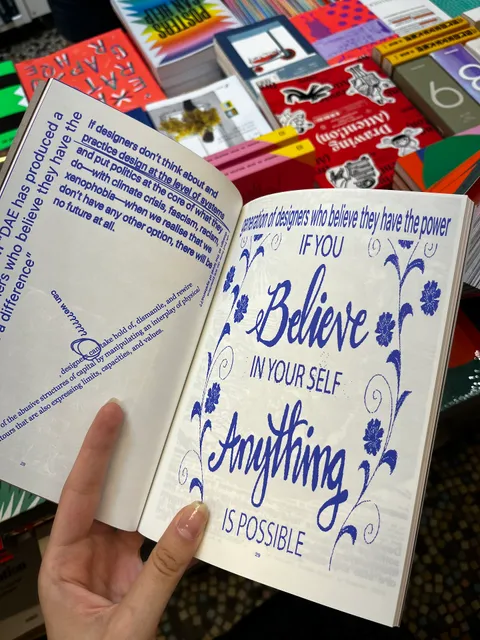 POSTERS
Drawing
(Attention)
9
8
" DAE has produced a
ers who believe they have the
a difference"
If designers don't think about and
practice design at the level of systems
and put politics at the core of what they
do—with climate crisis, fascism, racism,
xenophobia—when we realise that we
don't have any other option, there will be
no future at all.
can we
designers can take hold of, dismantle, and rewire
of the abusive structures of capital by manipulating an interplay of physical
tours that are also expressing limits, capacities, and values.
28
generation of designers who believe they have the power
IF YOU
Believe
IN YOUR SELF
Anything
IS POSSIBLE
29